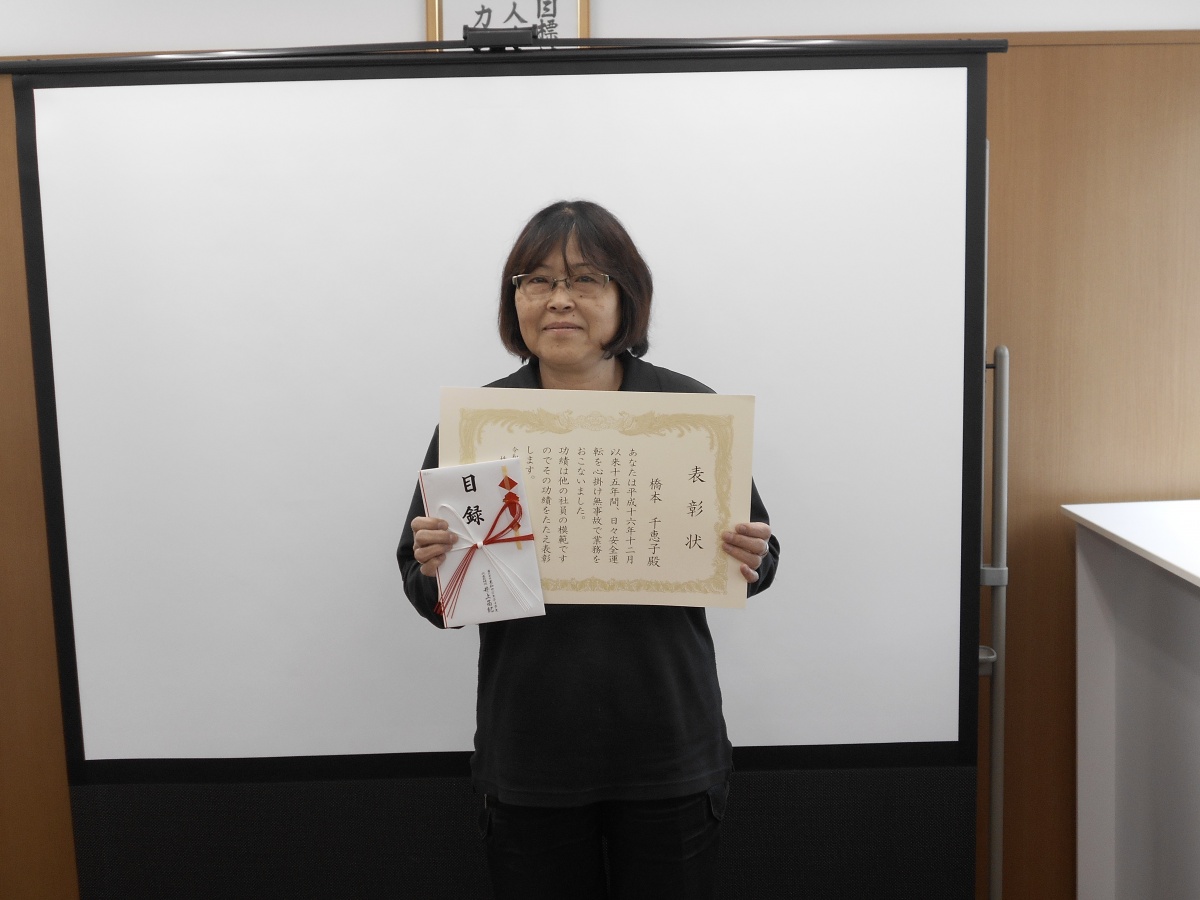 目標
人
力
表彰状
橋本 千恵子殿
あなたは平成十六年十二月
以来十五年間、日々安全運
転を心掛け無事故で業務を
おこないました。
功績は他の社員の模範です
のでその功績をたたえ表彰
します。
目録